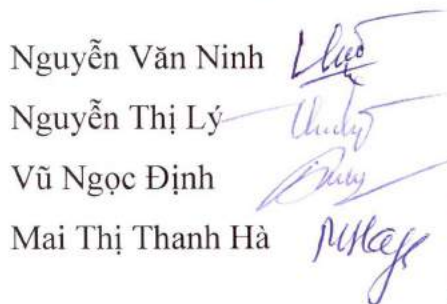 Nguyễn Văn Ninh
Nguyễn Thị Lý
Vũ Ngọc Định
Mai Thị Thanh Hà